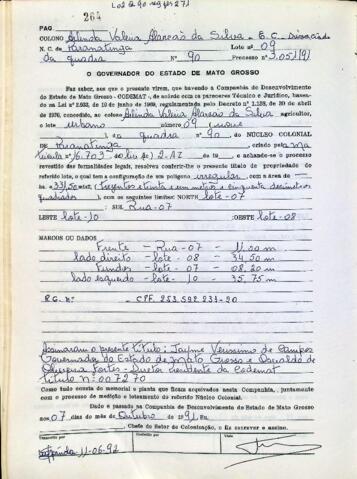 Lote 90 reg fls 271
PAG 264
COLONO Arlinda Valeria Alarcão da Silva - B.C.
N. C. de Paranatinga Lote nº 09
da quadra Nº 90 Processo nº 3.051/91
O GOVERNADOR DO ESTADO DE MATO GROSSO
Faz saber, aos que o presente virem, que havendo a Companhia de Desenvolvimento
do Estado de Mato Grosso - CODEMAT -, de acordo com os pareceres Técnico e Jurídico, basea-
do na Lei nº 2.933, de 10 de junho de 1969, regulamentada pelo Decreto nº 1.138, de 30 de abril
de 1970, concedido, ao colono Arlinda Valeria Alarcão da Silva agricultor,
o lote urbano número 09 (nove
) da quadra - 90 - do NÚCLEO COLONIAL
de Paranatinga, criado pela ma
tricula nº 6.703 ao liv (o) 2-AI de 19 e achando-se o processo
revestido das formalidades legais, resolveu conferir-lhe o presente título de propriedade do
referido lote, o qual tem a configuração de um polígono irregular com a área de
331,50 m² (Trezentos e trinta e um metros e cinquenta decimetros
quadrados) com os seguintes limites: NORTE lote-07
SUL Rua-07
LESTE lote-10 OESTE lote-08
MARCOS OU DADOS
Frente - Rua-07 - 11.00 m
lado direito - lote - 08 - 34,50 m
Fundos - lote - 07 - 08.20 m
lado esquerdo - lote - 10 35,75 m
R.G. nº CPF. 253.592.231-20
Assinaram o presente título: Jayme Verissimo de Campos
Governador do Estado de Mato Grosso e Oswaldo de
Oliveira Fortes - Diretor Presidente da Codemat
Título Nº 007270
Como tudo consta do memorial e planta que ficam arquivados nesta Companhia, juntamente
com o processo de medição e loteamento do referido Núcleo Colonial.
Dado e passado na Companhia de Desenvolvimento do Estado de Mato Grosso
aos 07 dias do mês de Outubro de 1991. Eu
Chefe do Setor de Colonização, o fiz escrever e assino.
11-06-92